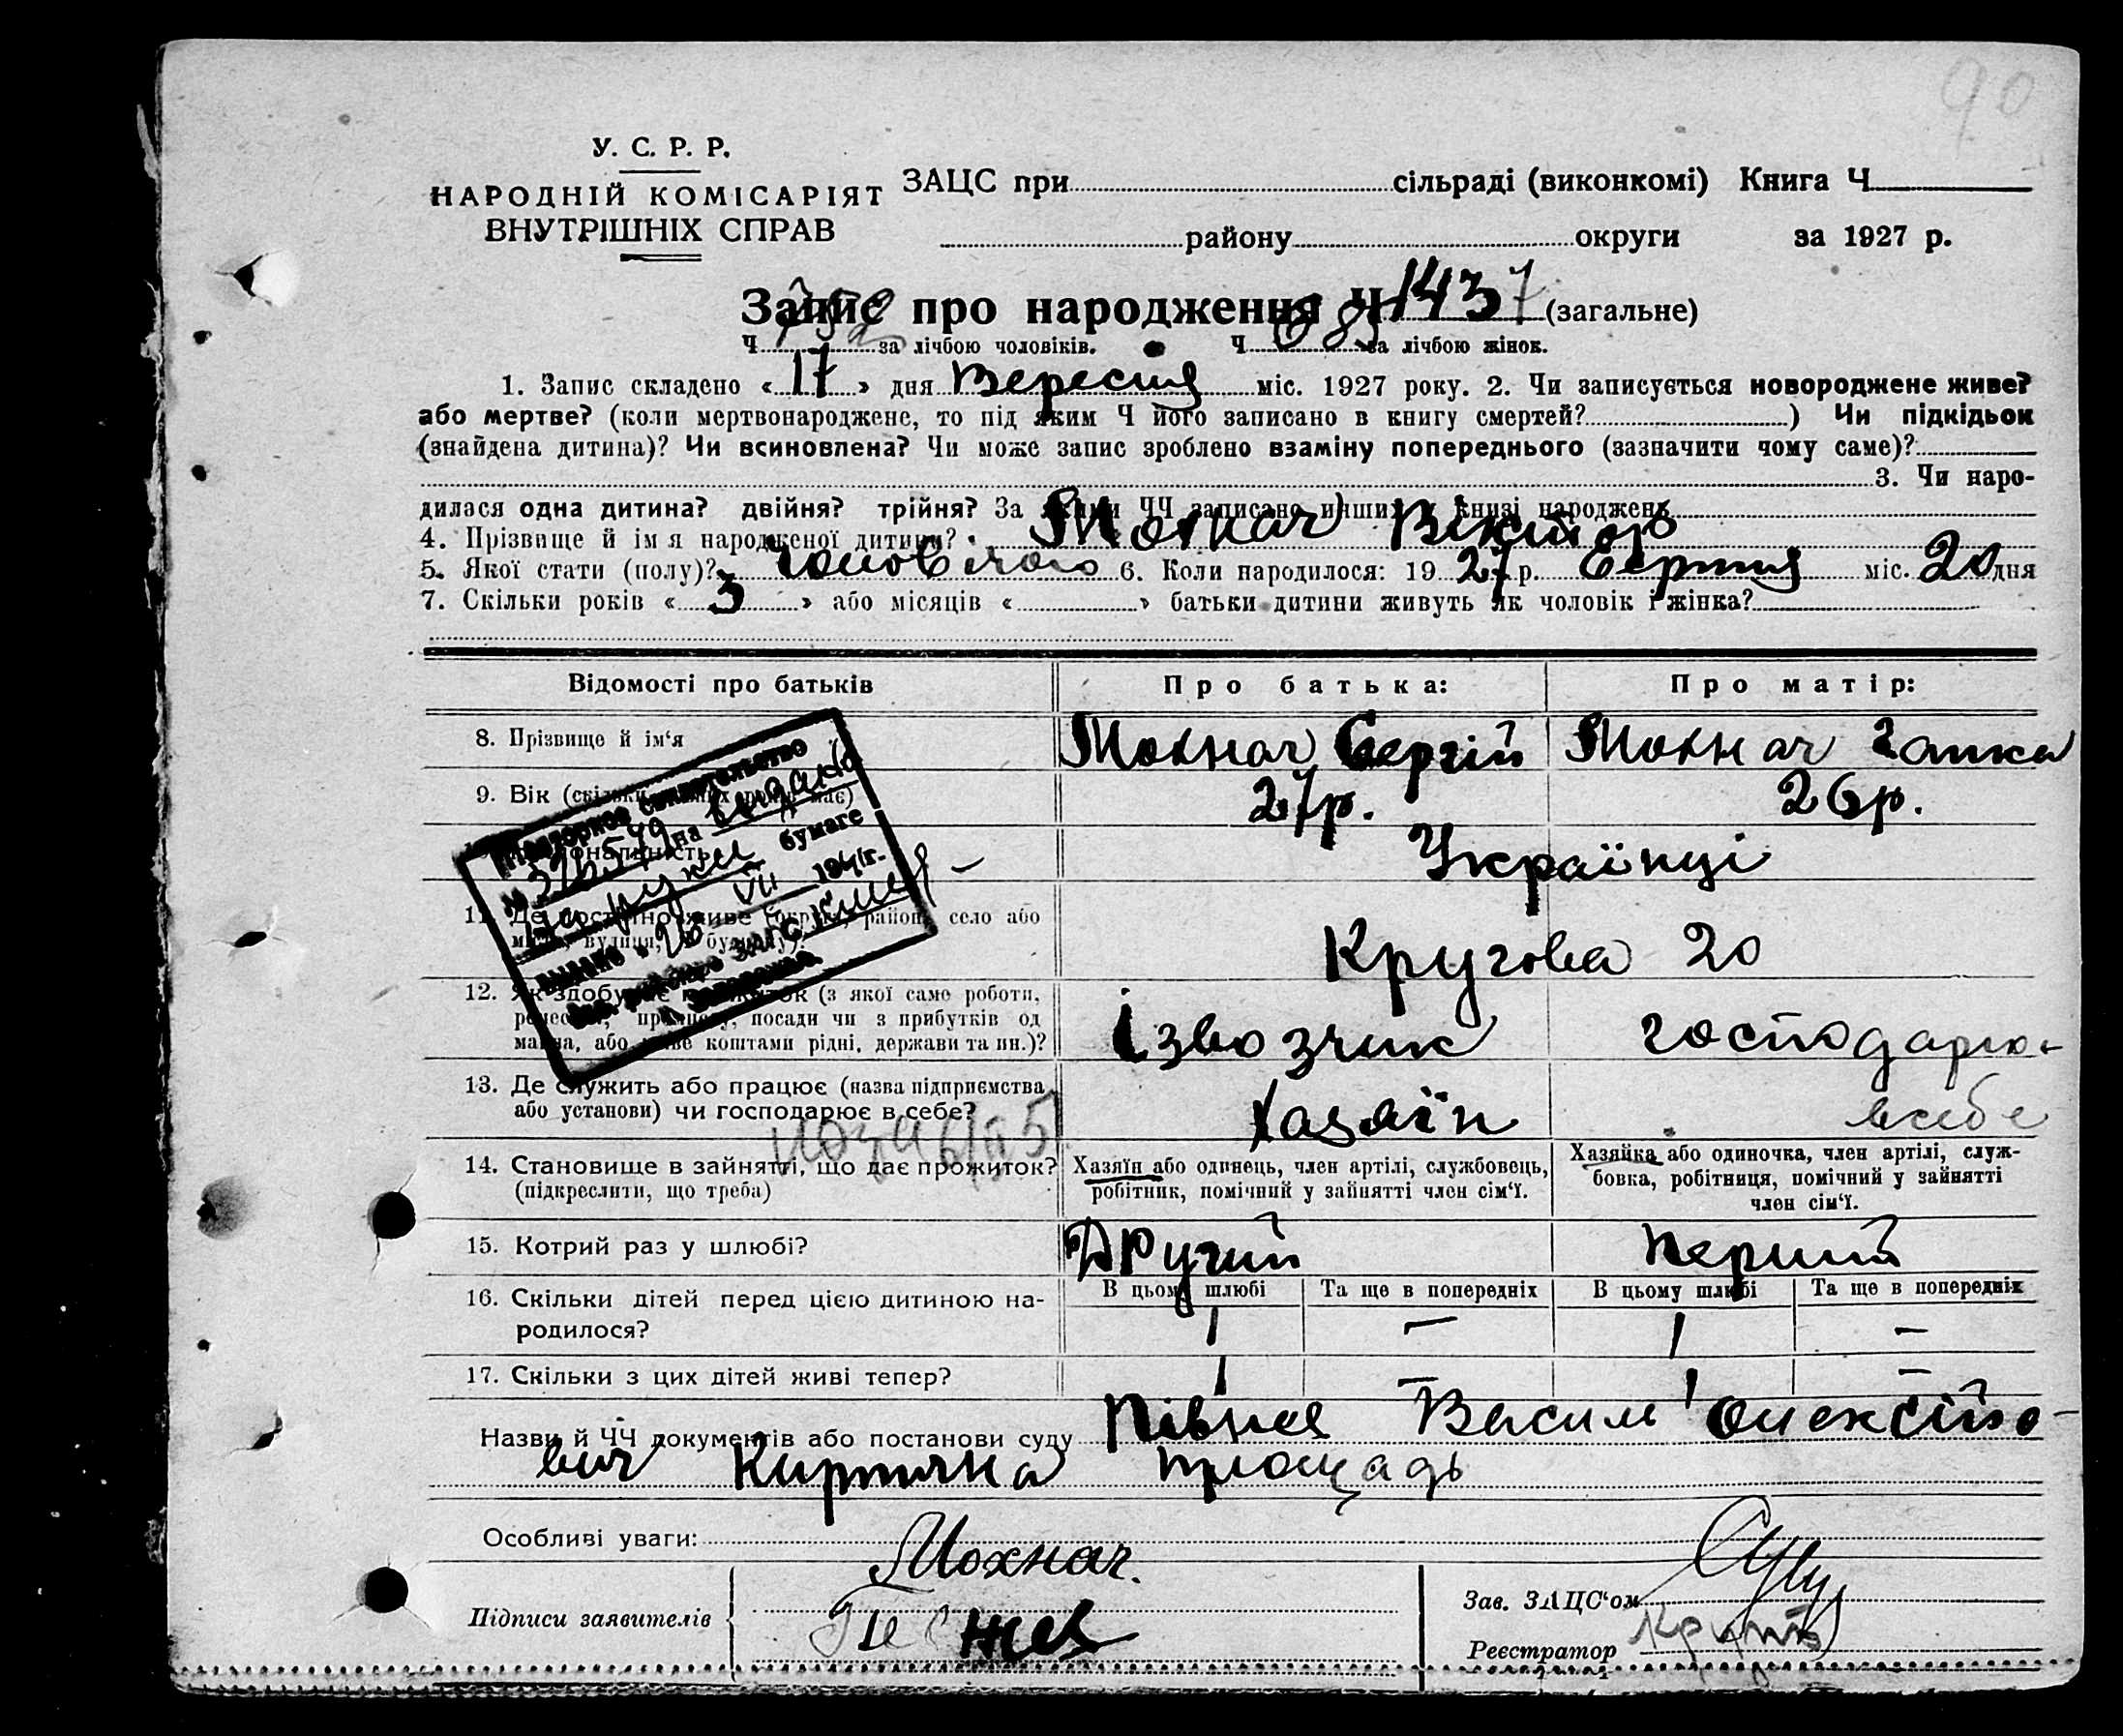 90
У. С. Р. Р.
НАРОДНІЙ КОМІСАРІЯТ
ВНУТРІШНІХ СПРАВ
ЗАЦС при сільраді (виконкомі) Книга Ч
району округи за 1927 р.
Запис про народження Ч 1437 (загальне)
Ч 752 за лічбою чоловіків. Ч 685 за лічбою жінок.
1. Запис складено «17» дня Вересня міс. 1927 року. 2. Чи записується новороджене живе?
або мертве? (коли мертвонароджене, то під яким Ч його записано в книгу смертей? ) Чи підкідьок
(знайдена дитина)? Чи всиновлена? Чи може запис зроблено взаміну попереднього (зазначити чому саме)?
3. Чи наро-
дилася одна дитина? двійня? трійня? За якими ЧЧ записано инших у книзі народжень
4. Прізвище й ім я народженої дитини? Мохнач Віктор
5. Якої стати (полу)? чоловічого 6. Коли народилося: 19 27 р. Серпня міс. 20 дня
7. Скільки років «3» або місяців « » батьки дитини живуть як чоловік і жінка?
Відомості про батьків Про батька: Про матір:
8. Прізвище й ім‘я Мохнач Сергій Мохнач Ганна
9. Вік (скільки повних років має) 27р. 26р.
Українці
11. Де постійно живе (округа, район, село або
місто, вулиця, Ч будинку)? Кругова 20
12. Як здобуває прожиток (з якої само роботи,
ремества, промислу, посади чи з прибутків од
майна, або живе коштами рідні, держави та ин.)? Ізвозчик господарює
13. Де служить або працює (назва підприємства
або установи) чи господарює в себе? Хазяїн всебе
14. Становище в зайнятті, що дає прожиток?
(підкреслити, що треба)
Хазяїн або одинець, член артілі, службовець,
робітник, помічний у зайнятті член сім‘ї.
Хазяйка або одиночка, член артілі, служ-
бовка, робітниця, помічний у зайнятті
член сім‘ї.
15. Котрий раз у шлюбі? Другий перший
16. Скільки дітей перед цією дитиною на-
родилося?
В цьому шлюбі Та ще в попередніх В цьому шлюбі Та ще в попередніх
1 — 1 —
17. Скільки з цих дітей живі тепер? 1 — 1 —
Назви й ЧЧ документів або постанови суду Півнєв Василь Олексійо-
вич Кирпична площадь
Особливі уваги:
Мохнач.
Підписи заявителів
Зав. ЗАЦС‘ом
Реєстратор
Повторное свидетельство
на бумаге
выдано «26» VII 1941г.